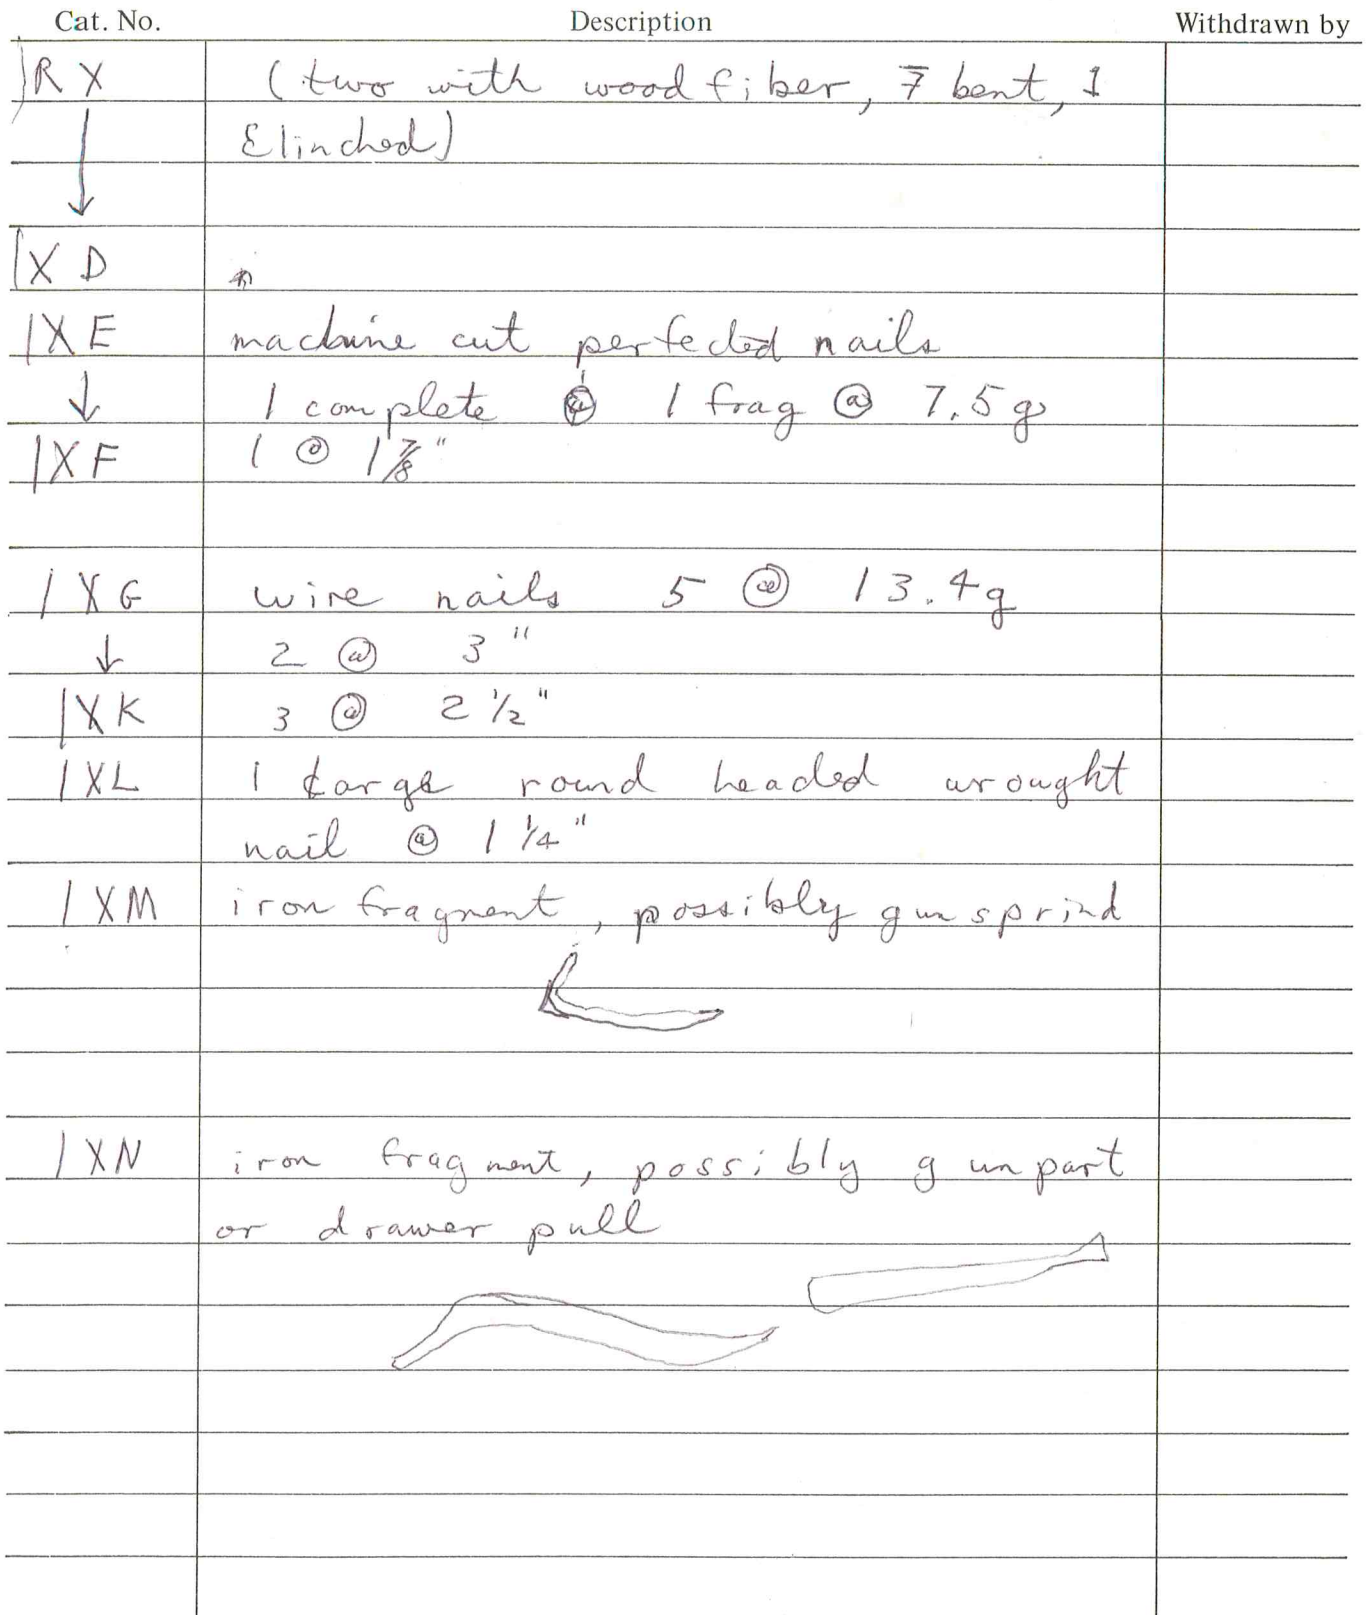 Cat. No. Description Withdrawn by
RX (two with wood fiber, 7 bent, 1
Clinched)
↓
1XD
1XE machine cut perfected nails
↓ 1 complete & 1 frag @ 7.5g
1XF 1 @ 1 7/8"
1XG wire nails 5 @ 13.4g
↓ 2 @ 3"
1XK 3 @ 2 1/2"
1XL 1 large round headed wrought
nail @ 1 1/4"
1XM iron fragment, possibly gun sprind
1XN iron fragment, possibly gun part
or drawer pull